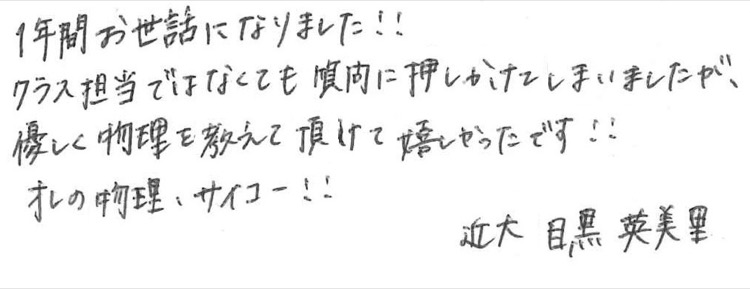 1年間お世話になりました!!
クラス担当ではなくても質問に押しかけてしまいましたが、
優しく物理を教えて頂けて嬉しかったです!!
オレの物理、サイコー!!
近大 目黒 英美里